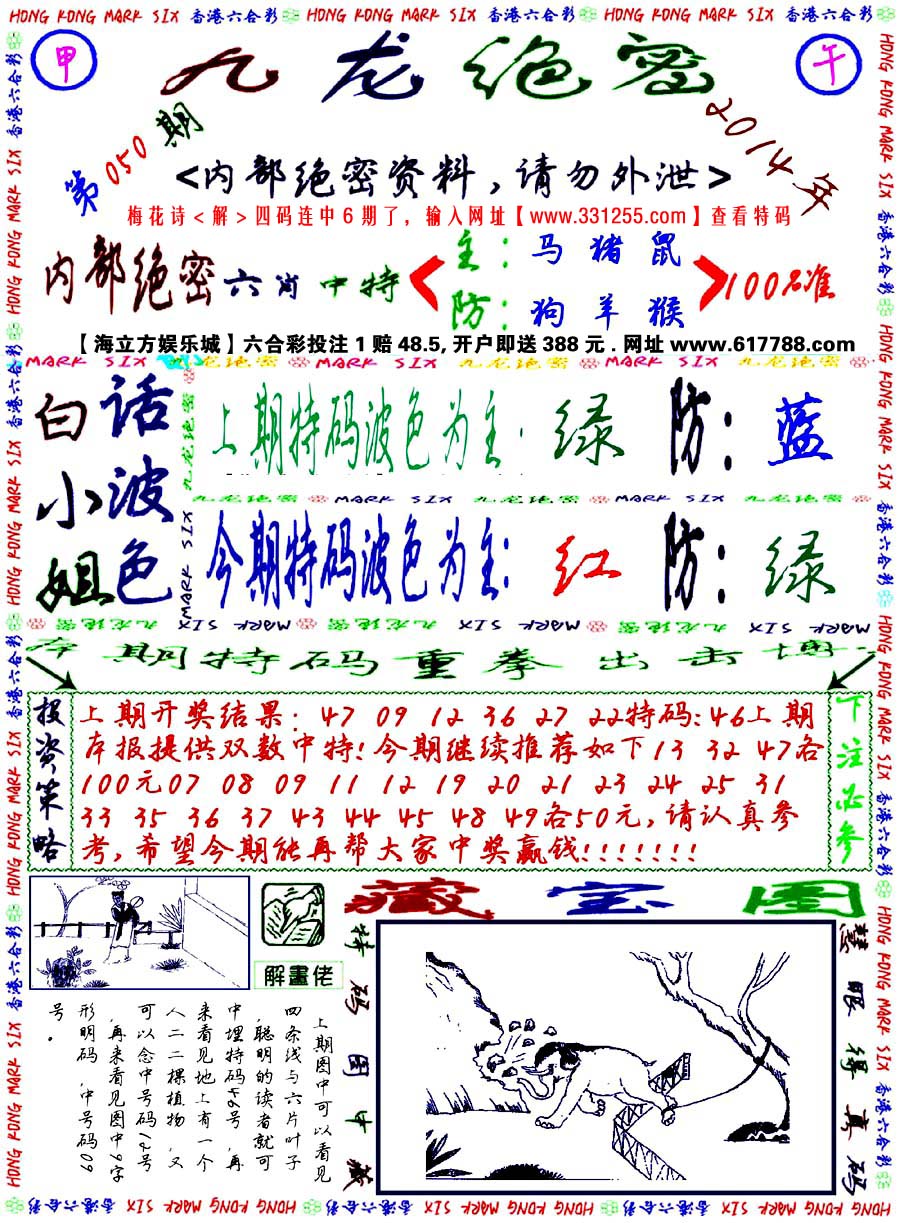 HONG KONG MARK SIX 香港六合彩 HONG KONG MARK SIX 香港六合彩 HONG KONG MARK SIX 香港六合彩
甲
九龙绝密
午
第050期
2014年
<内部绝密资料,请勿外泄>
梅花诗<解>四码连中6期了,输入网址【www.331255.com】查看特码
内部绝密六肖中特
主:马猪鼠
防:狗羊猴
100%准
【海立方娱乐城】六合彩投注1赔48.5,开户即送388元.网址www.617788.com
MARK SIX 九龙绝密 MARK SIX 九龙绝密 MARK SIX 九龙绝密
白小姐
话波色
上期特码波色为主:绿 防:蓝
九龙绝密 MARK SIX 九龙绝密 MARK SIX 九龙绝密
今期特码波色为主:红 防:绿
MARK SIX 九龙绝密 MARK SIX 九龙绝密 MARK SIX 九龙绝密 MARK SIX
本期特码重拳出击
投资策略
上期开奖结果:47 09 12 36 27 22特码:46上期
本报提供双数中特!今期继续推荐如下13 32 47各
100元07 08 09 11 12 19 20 21 23 24 25 31
33 35 36 37 43 44 45 48 49各50元,请认真参
考,希望今期能再帮大家中奖赢钱!!!!!!!
下注必参
藏宝图
解畫佬
上期图中可以看见
四条线与六片叶子
,聪明的读者就可
中埋特码46号,再
来看见地上有一个
人二二棵植物,又
可以念中号码12号
,再来看见图中9字
形明码,中号码09
号.
特码图中藏
慧眼得真码
HONG KONG MARK SIX 香港六合彩 HONG KONG MARK SIX 香港六合彩 HONG KONG MARK SIX 香港六合彩